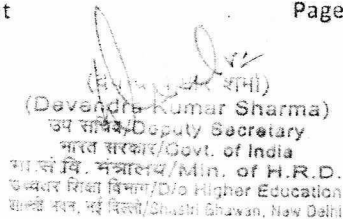 t Page
शर्मा)
(Devendra Kumar Sharma)
उप सचिव/Deputy Secretary
भारत सरकार/Govt. of India
मा.सं.वि. मंत्रालय/Min. of H.R.D.
उच्चतर शिक्षा विभाग/D/o Higher Education
शास्त्री भवन, नई दिल्ली/Shastri Bhawan, New Delhi